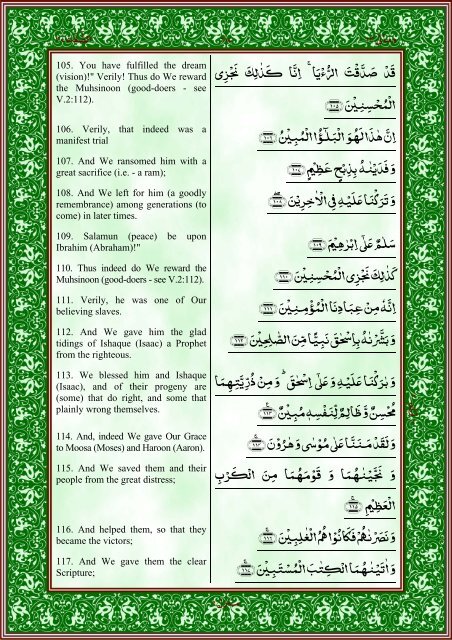 105. You have fulfilled the dream
(vision)!" Verily! Thus do We reward
the Muhsinoon (good-doers - see
V.2:112).
قَدْ صَدَّقْتَ الرُّءْيَا ۚ اِنَّا كَذٰلِكَ نَجْزِى
الْمُحْسِنِيْنَ ﴿١٠٥﴾
106. Verily, that indeed was a
manifest trial
اِنَّ هٰذَا لَهُوَ الْبَلٰٓؤُا الْمُبِيْنُ ﴿١٠٦﴾
107. And We ransomed him with a
great sacrifice (i.e. - a ram);
وَفَدَيْنٰهُ بِذِبْحٍ عَظِيْمٍ ﴿١٠٧﴾
108. And We left for him (a goodly
remembrance) among generations (to
come) in later times.
وَتَرَكْنَا عَلَيْهِ فِى الْاٰخِرِيْنَ ﴿١٠٨﴾
109. Salamun (peace) be upon
Ibrahim (Abraham)!"
سَلٰمٌ عَلٰٓى اِبْرٰهِيْمَ ﴿١٠٩﴾
110. Thus indeed do We reward the
Muhsinoon (good-doers - see V.2:112).
كَذٰلِكَ نَجْزِى الْمُحْسِنِيْنَ ﴿١١٠﴾
111. Verily, he was one of Our
believing slaves.
اِنَّهٗ مِنْ عِبَادِنَا الْمُؤْمِنِيْنَ ﴿١١١﴾
112. And We gave him the glad
tidings of Ishaque (Isaac) a Prophet
from the righteous.
وَبَشَّرْنٰهُ بِاِسْحٰقَ نَبِيًّا مِّنَ الصّٰلِحِيْنَ ﴿١١٢﴾
113. We blessed him and Ishaque
(Isaac), and of their progeny are
(some) that do right, and some that
plainly wrong themselves.
وَبٰرَكْنَا عَلَيْهِ وَعَلٰٓى اِسْحٰقَ ؕ وَمِنْ ذُرِّيَّتِهِمَا
مُحْسِنٌ وَّظَالِمٌ لِّنَفْسِهٖ مُبِيْنٌ ﴿١١٣﴾
114. And, indeed We gave Our Grace
to Moosa (Moses) and Haroon (Aaron).
وَلَقَدْ مَنَنَّا عَلٰى مُوْسٰى وَهٰرُوْنَ ﴿١١٤﴾
115. And We saved them and their
people from the great distress;
وَ نَجَّيْنٰهُمَا وَ قَوْمَهُمَا مِنَ الْكَرْبِ
الْعَظِيْمِ ﴿١١٥﴾
116. And helped them, so that they
became the victors;
وَنَصَرْنٰهُمْ فَكَانُوْا هُمُ الْغٰلِبِيْنَ ﴿١١٦﴾
117. And We gave them the clear
Scripture;
وَاٰتَيْنٰهُمَا الْكِتٰبَ الْمُسْتَبِيْنَ ﴿١١٧﴾